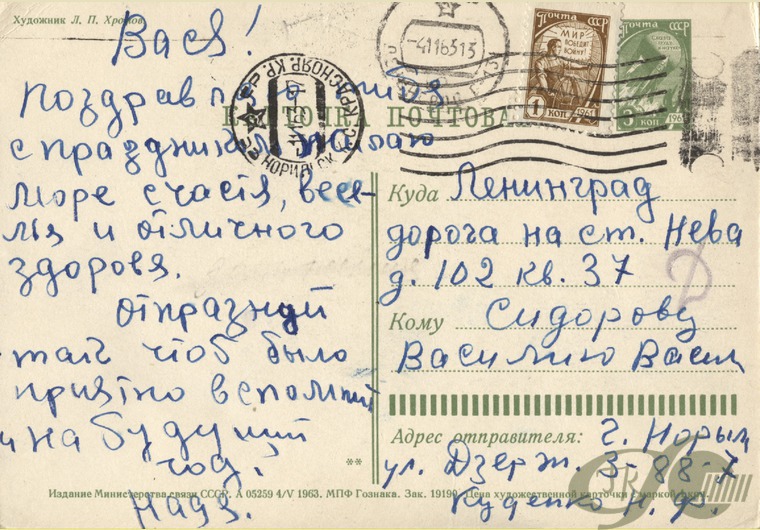 Художник Л. П. Хромов.
Вася!
Поздравляю тебя
с праздником желаю
море счастя, весе-
лья и отличного
здоровя.
отпразнуй
так чтоб было
приятно вспомнить
и на будущий
год.
Надя.
КАРТОЧКА ПОЧТОВАЯ
ПОЧТА СССР
МИР ПОБЕДИТ ВОЙНУ!
1 КОП 1961
ПОЧТА СССР
3 КОП 1961
-4116313
НОРИЛЬСК КРАСНОЯР. КР.
Куда Ленинград
дорога на ст. Нева
д. 102 кв. 37
Кому Сидорову
Василию Васил
Адрес отправителя: г. Норил
ул. Дзерж. 3-88-7
Куценко Н. Ф.
**
Издание Министерства связи СССР. А 05259 4/V 1963. МПФ Гознака. Зак. 19190. Цена художественной карточки с маркой 4 коп.